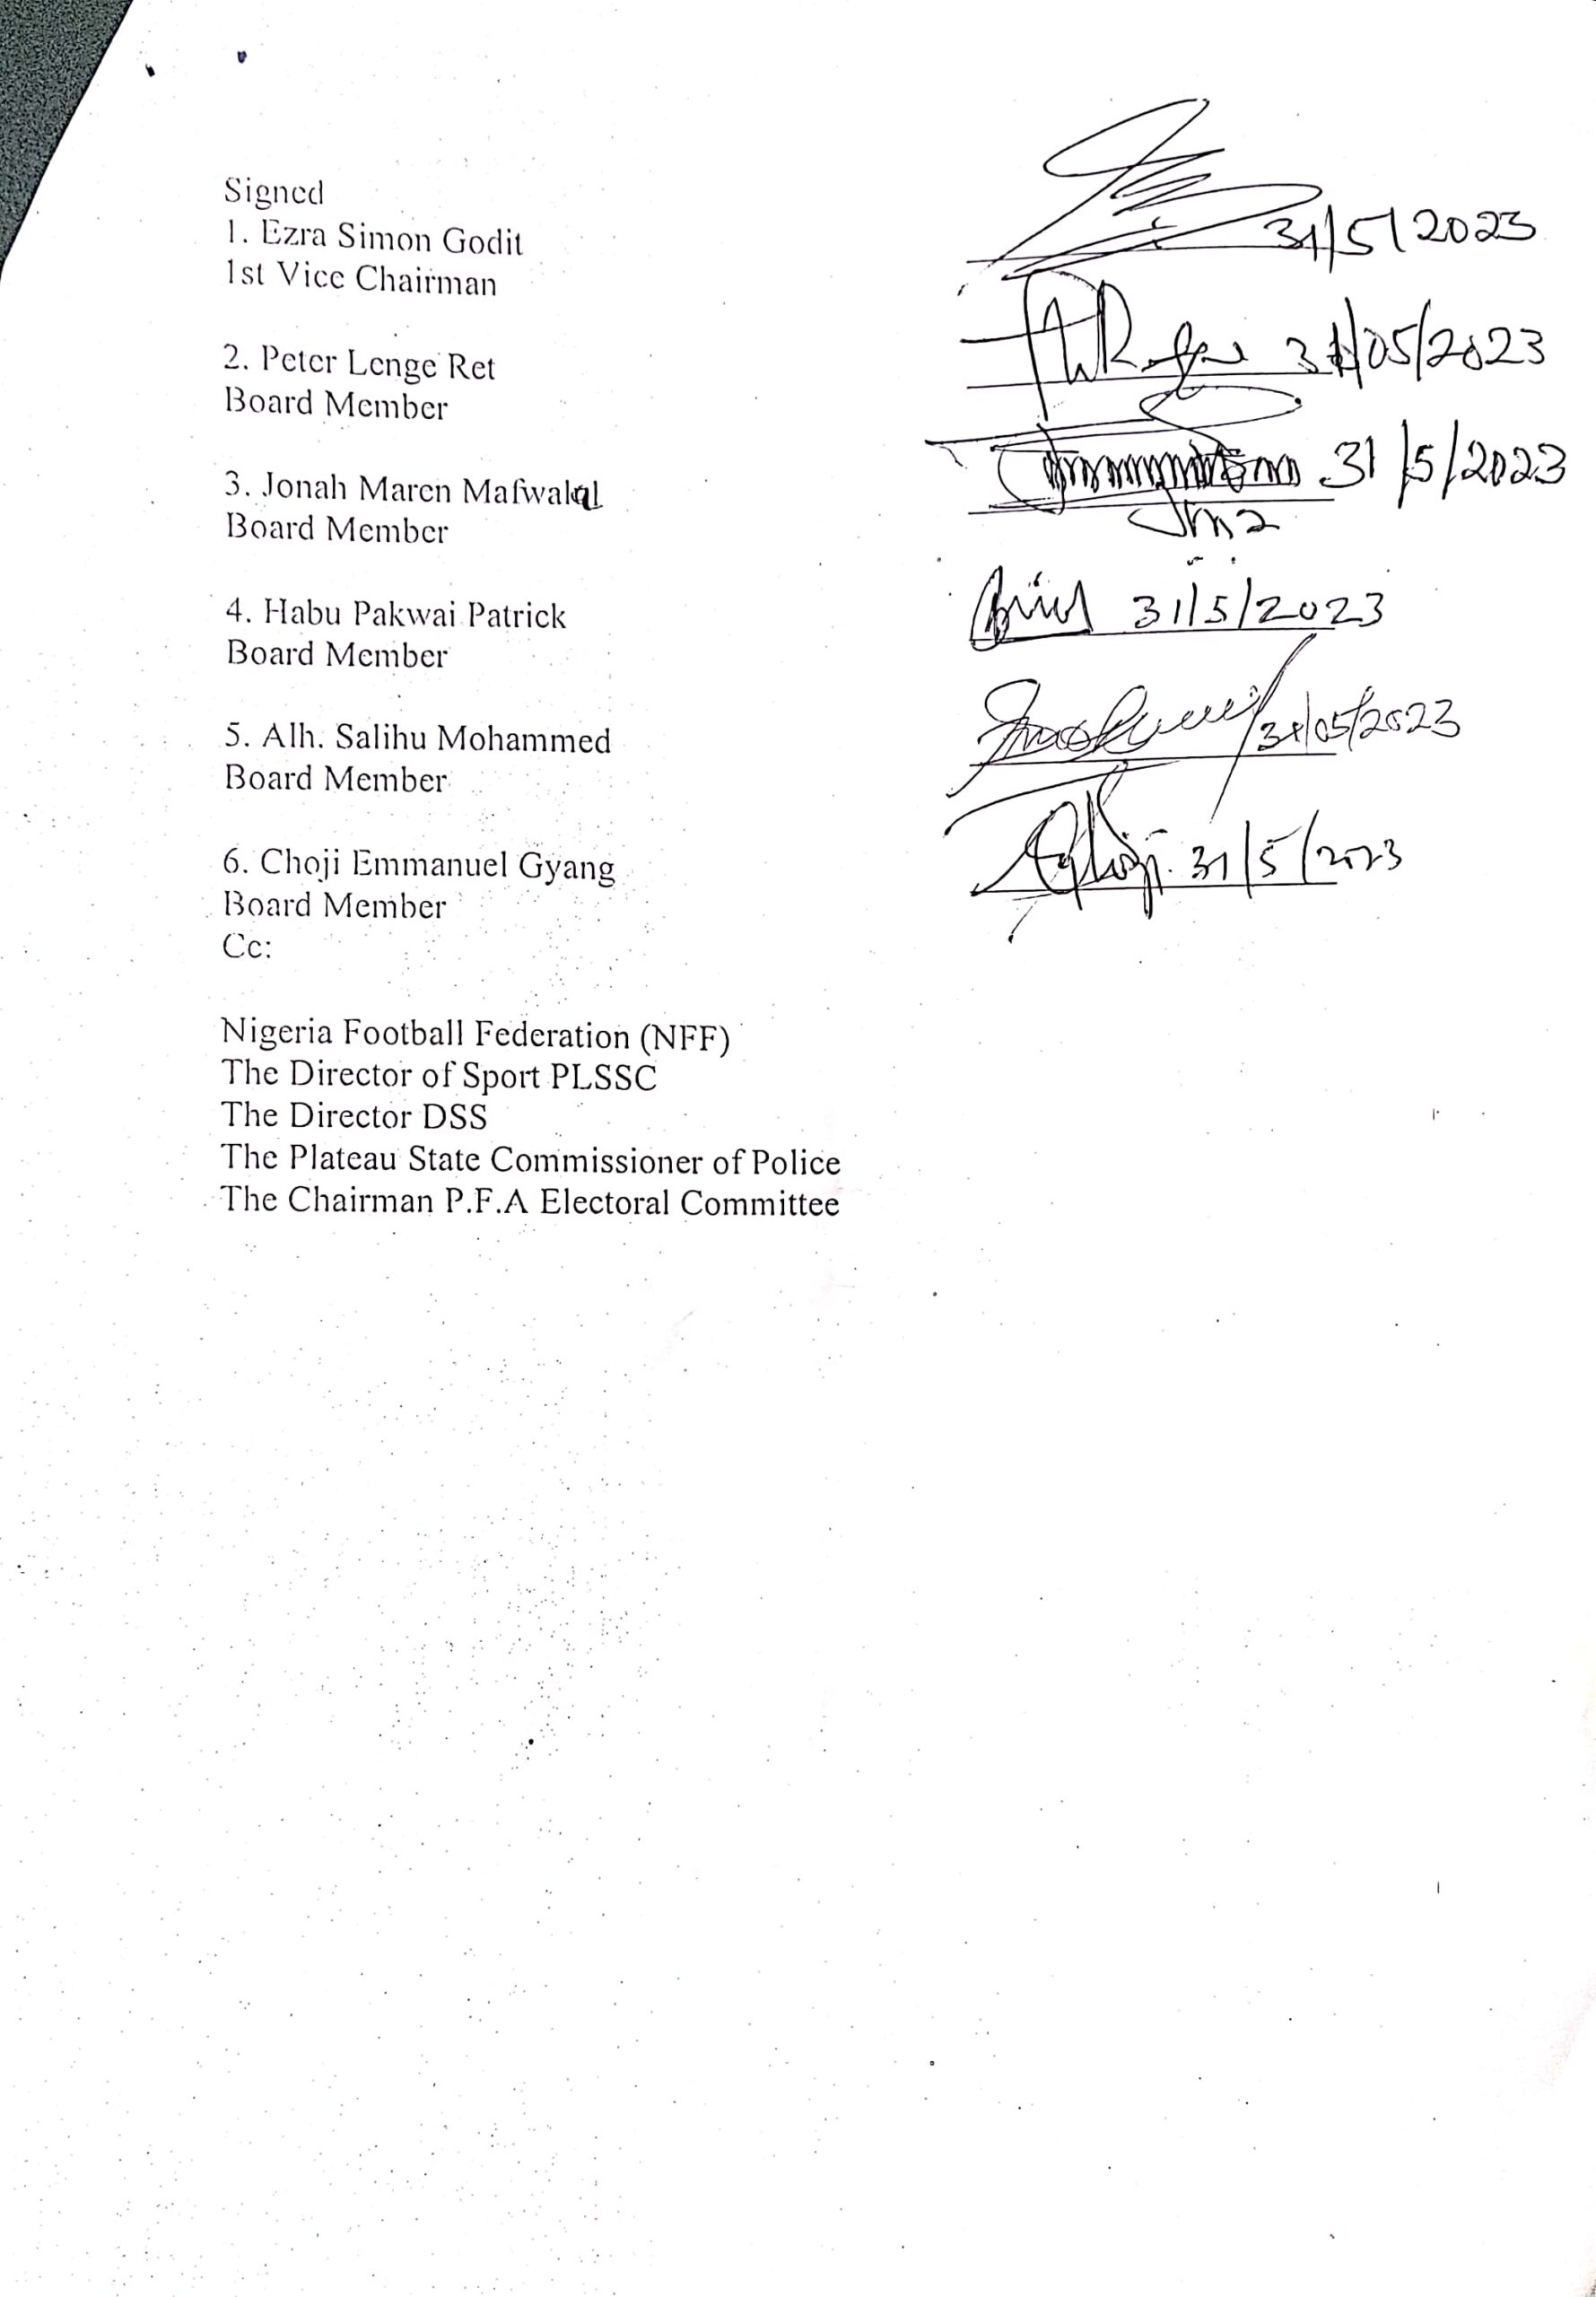 Signed
1. Ezra Simon Godit
31/5/2023
1st Vice Chairman
2. Peter Lenge Ret
31/05/2023
Board Member
3. Jonah Maren Mafwalal
31/5/2023
Board Member
Jm2
4. Habu Pakwai Patrick
31/5/2023
Board Member
5. Alh. Salihu Mohammed
31/05/2023
Board Member
6. Choji Emmanuel Gyang
31/5/2023
Board Member
Cc:
Nigeria Football Federation (NFF)
The Director of Sport PLSSC
The Director DSS
The Plateau State Commissioner of Police
The Chairman P.F.A Electoral Committee